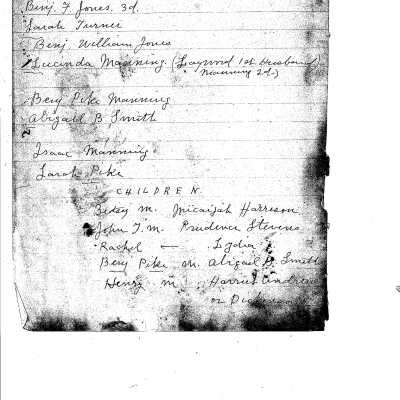 Benj. F Jones. 3d.
Sarah Turner
Benj. William Jones
Lucinda Manning (Haywood 1st Husband,
Manning 2d.)
Benj Pike Manning
Abigail B Smith
Isaac Manning
Sarah Pike
CHILDREN
Betsy m. Micaijah Harrison
John T. M. Prudence Stevens
Rachel — Lydia
Benj Pike m. Abigail B. Smith
Henry m Harriet Andrews
or Dickins